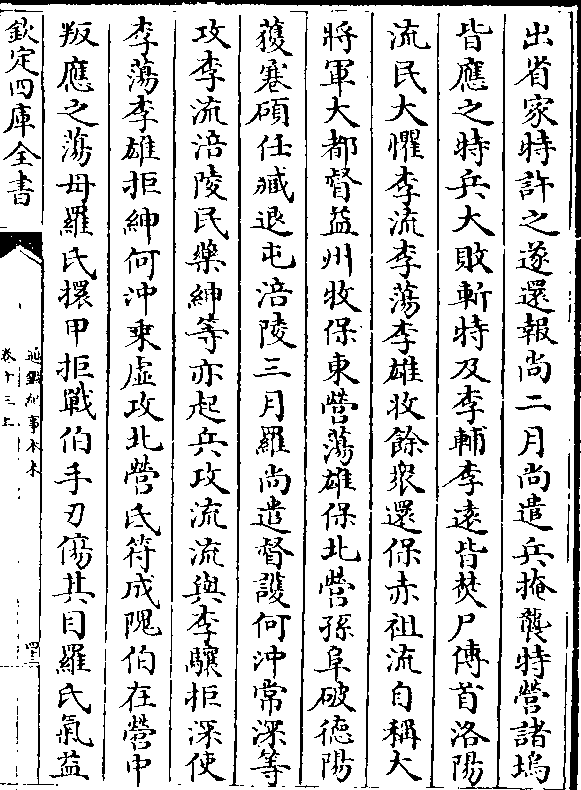 出省家特許之遂還報尚二月尚遣兵掩襲特營諸塢
皆應之特兵大敗斬特及李輔李遠皆焚尸傳首洛陽
流民大懼李流李蕩李雄收餘衆還保赤祖流自稱大
將軍大都督益州牧保東營蕩雄保北營孫阜破德陽
獲寋碩任臧退屯涪陵三月羅尚遣督護何沖常深等
攻李流涪陵民藥紳等亦起兵攻流流與李驤拒深使
李蕩李雄拒紳何沖乘虛攻北營氐符成隗伯在營中
叛應之蕩母羅氏擐甲拒戰伯手刃傷其目羅氏氣益
欽定四庫全書
通鑑紀事本末
卷十三上